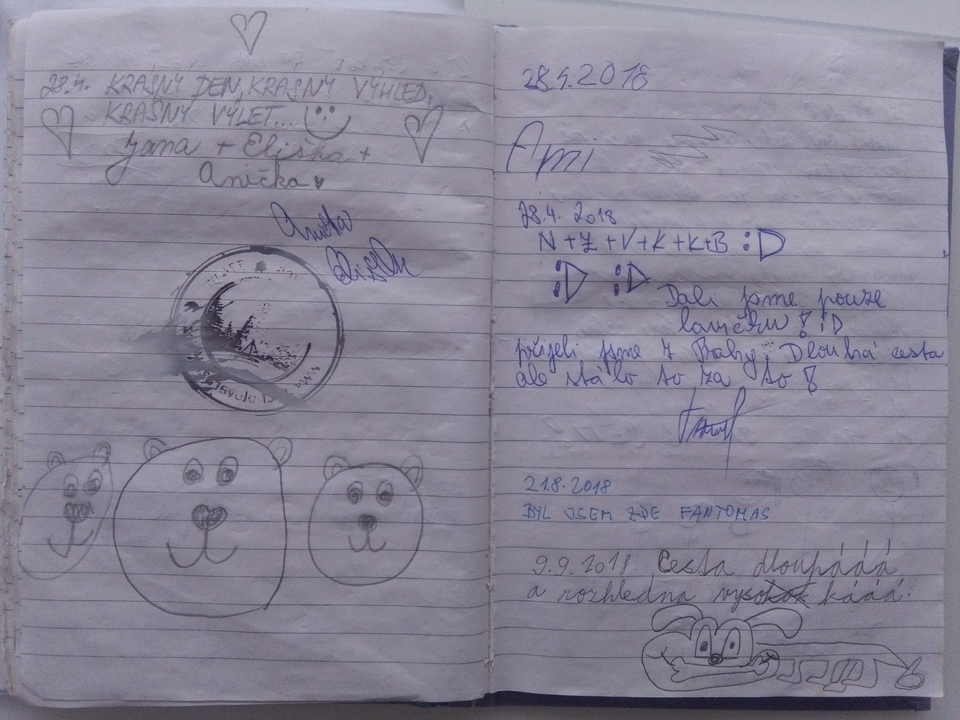 28.4. KRÁSNÝ DEN, KRÁSNÝ VÝHLED,
KRÁSNÝ VÝLET...
Jana + Eliška +
Anička
28.4.2018
Ami
28.4. 2018
N + Z + V + K + K + B :D
:D :D Dali jsme pouze
lavičku :D
přijeli jsme z Baby. Dlouhá cesta
ale stálo to za to
21.8.2018
BYL JSEM ZDE FANTOMAS
9.9.2018 Cesta dloupááá
a rozhledna vysokááá.